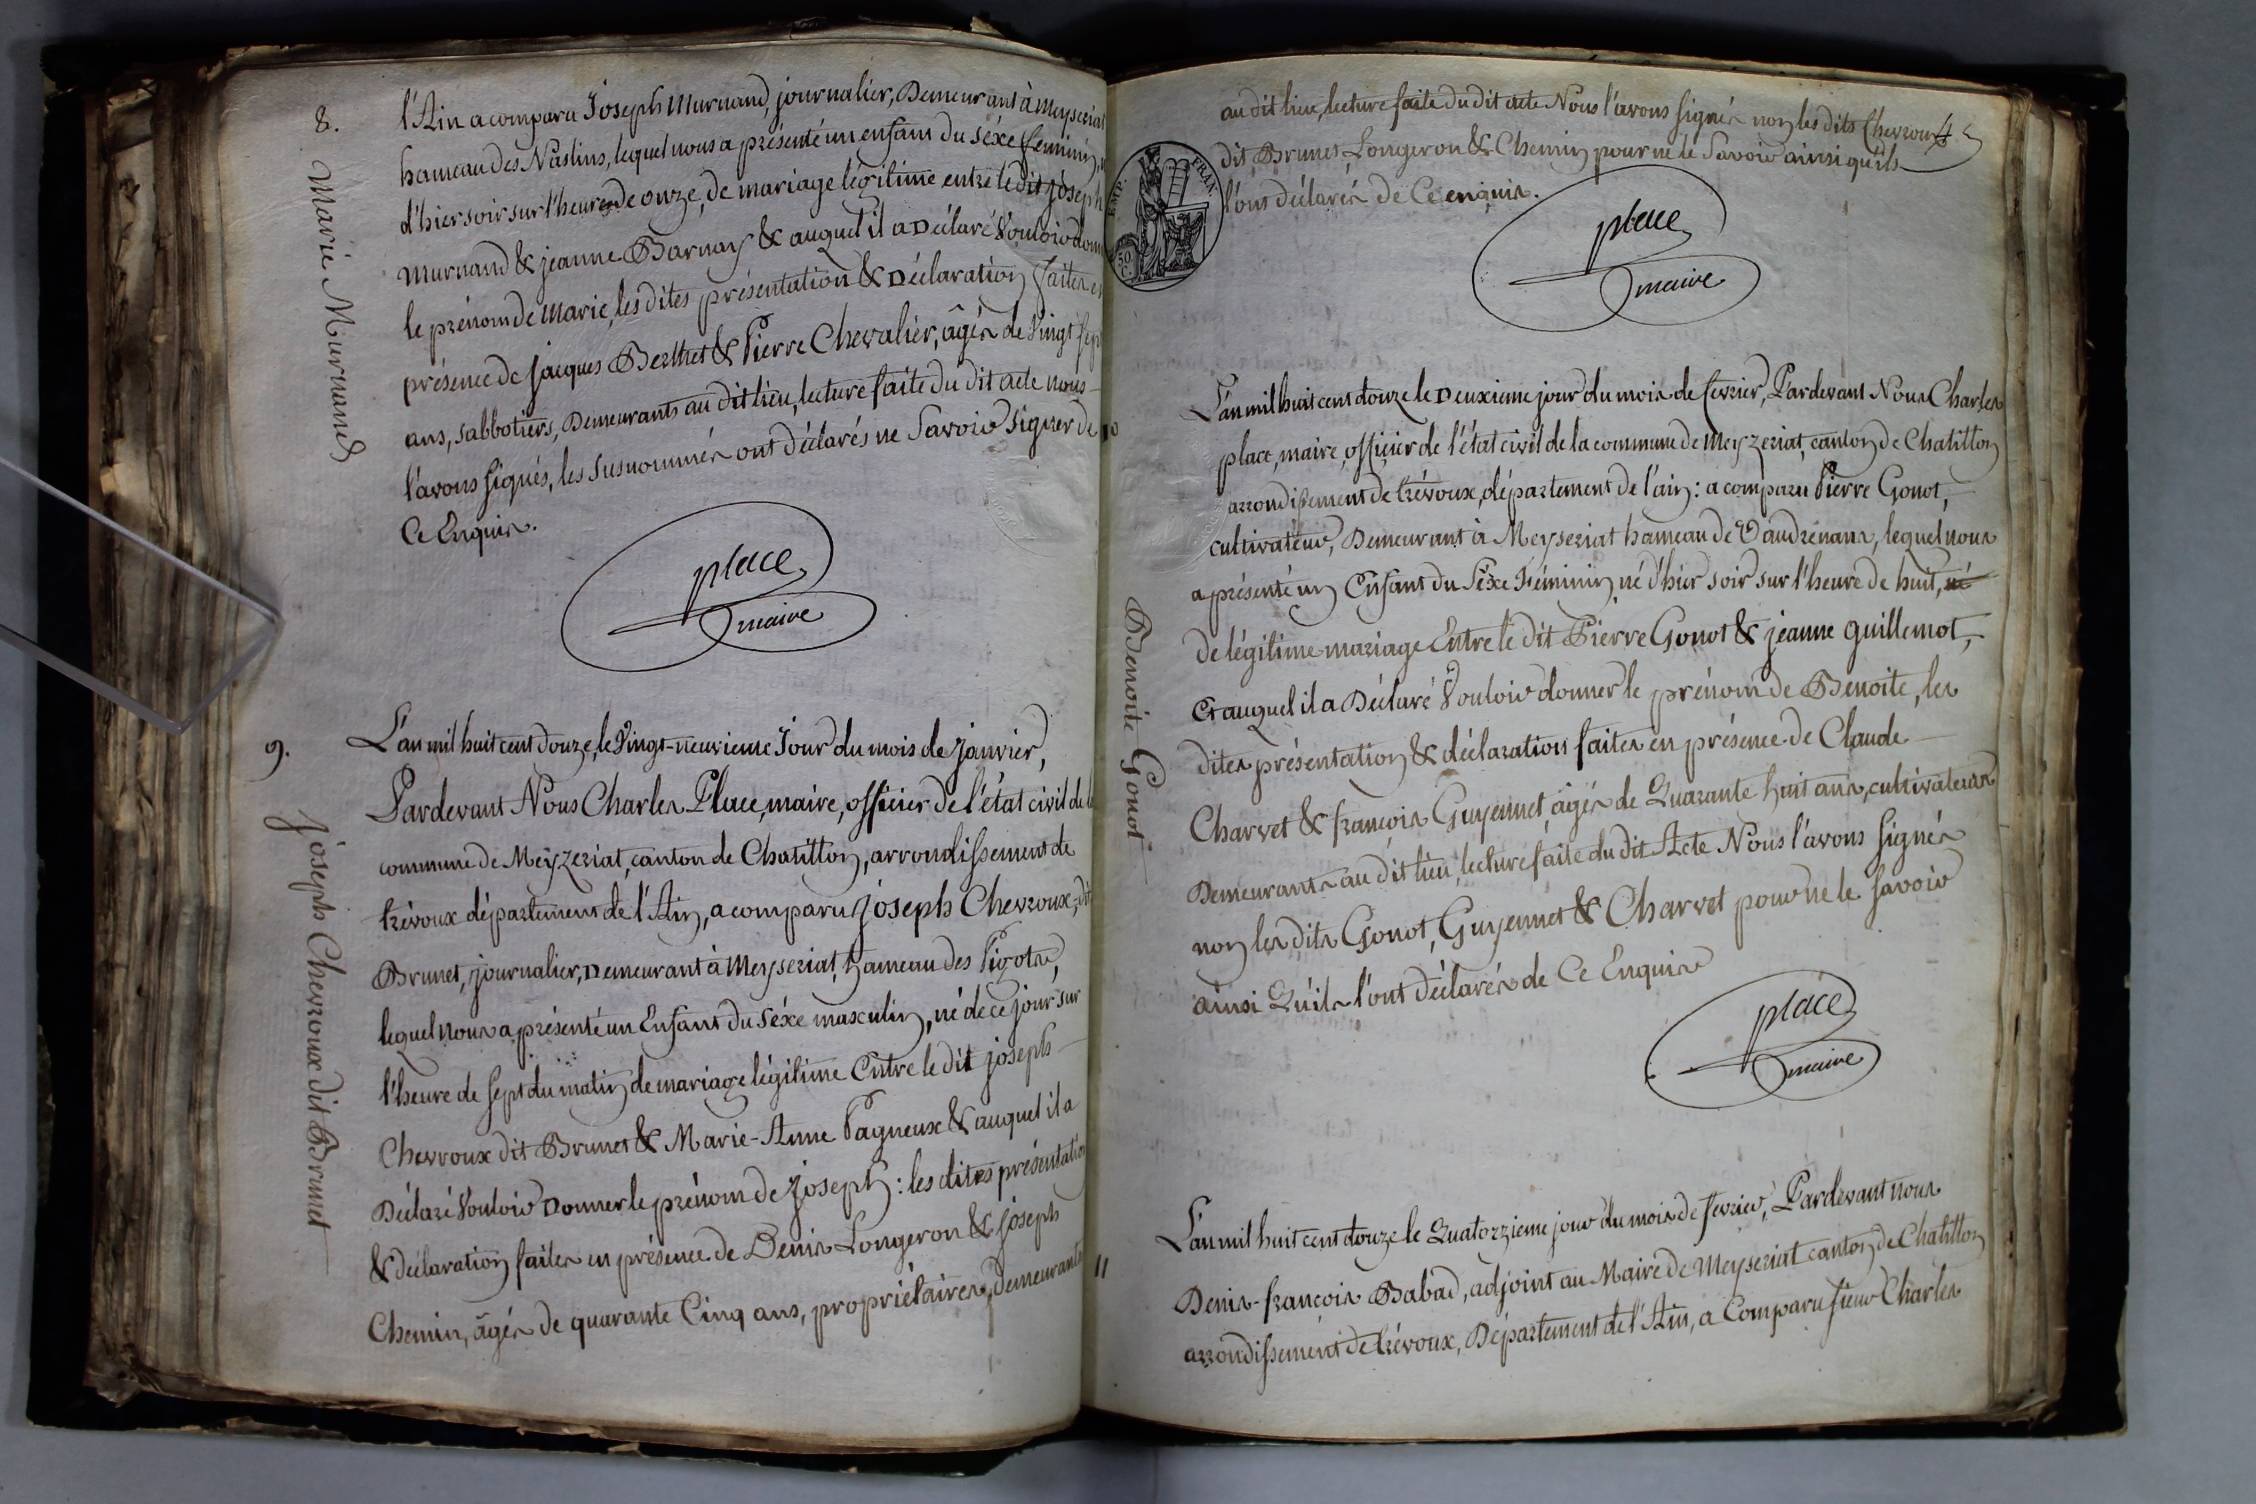 8.
Marie Murnand
l'Ain a comparu Joseph Murnand, journalier, Demeurant à Meyseriat
hameau des Naslins, lequel nous a présenté un enfant du séxe féminin,
d'hier soir sur l'heure de onze, de mariage légitime entre le dit Joseph
Murnand & jeanne Barnay & auquel il a Déclaré Vouloir donn
le prénom de Marie, les dites présentation & Déclaration faites en
présence de Jacques Berthet & Pierre Chevalier, âgés de Vingt sept
ans, sabbotiers, Demeurants au dit lieu, lecture faite du dit acte nous
l'avons signés, les susnommés ont déclarés ne Savoir signer de
Ce Enquis.
place
maire
9.
Joseph Chevroux dit Brunet
L'an mil huit cent douze, le Vingt-neuvieme Jour du mois de janvier,
Pardevant Nous Charles Place, maire, officier de l'état civil de la
commune de Meyzeriat, canton de Chatillon, arrondissement de
trévoux département de l'Ain, a comparu Joseph Chevroux, dit
Brunet, journalier, Demeurant à Meyseriat, hameau des Pigots,
lequel nous a présenté un Enfant du Séxe masculin, né de ce jour sur
l'heure de sept du matin de mariage légitime Entre le dit joseph
Chevroux dit Brunet & Marie-Anne Pagneux & auquel il a
Déclaré Vouloir Donner le prénom de Joseph : les dites présentation
& déclaration faites en présence de Denis Longeron & joseph
Chemin, âgés de quarante Cinq ans, propriétaires, demeurants
au dit lieu, lecture faite du dit acte Nous l'avons signés non les dits Chevroux
dit Brunet Longeron & Chemin pour ne le Savoir ainsi qu'ils
l'ont déclarés de Ce enquis.
EMP. FRAN
50
C.
place
maire
10
Benoite Gonot
L'an mil huit cent douze le Deuxieme jour du mois de fevrier, Pardevant Nous Charles
place, maire, officier de l'état civil de la commune de Meyzeriat, canton de Chatillon
arrondissement de trévoux, département de l'ain : a comparu Pierre Gonot,
cultivateur, Demeurant à Meyseriat hameau de Vaudrenans, lequel nous
a présenté un Enfant du Séxe Féminin né d'hier soir sur l'heure de huit, né
de légitime mariage Entre le dit Pierre Gonot & jeanne Guillemot,
Et auquel il a Déclaré Vouloir donner le prénom de Benoite, les
dites présentation & déclaration faites en présence de Claude
Charvet & françois Guyennet, âgés de Quarante huit ans, cultivateurs
Demeurants au dit lieu, lecture faite du dit Acte Nous l'avons signés
non les dits Gonot, Guyennet & Charvet pour ne le savoir
ainsi Qu'ils l'ont déclarés de Ce Enquis
place
maire
11
L'an mil huit cent douze le Quatorzzieme jour du mois de fevrier, Pardevant nous
Denis-françois Babad, adjoint au Maire de Meyseriat canton de Chatillon
arrondissement de trévoux, Département de l'Ain, a Comparu sieur Charles